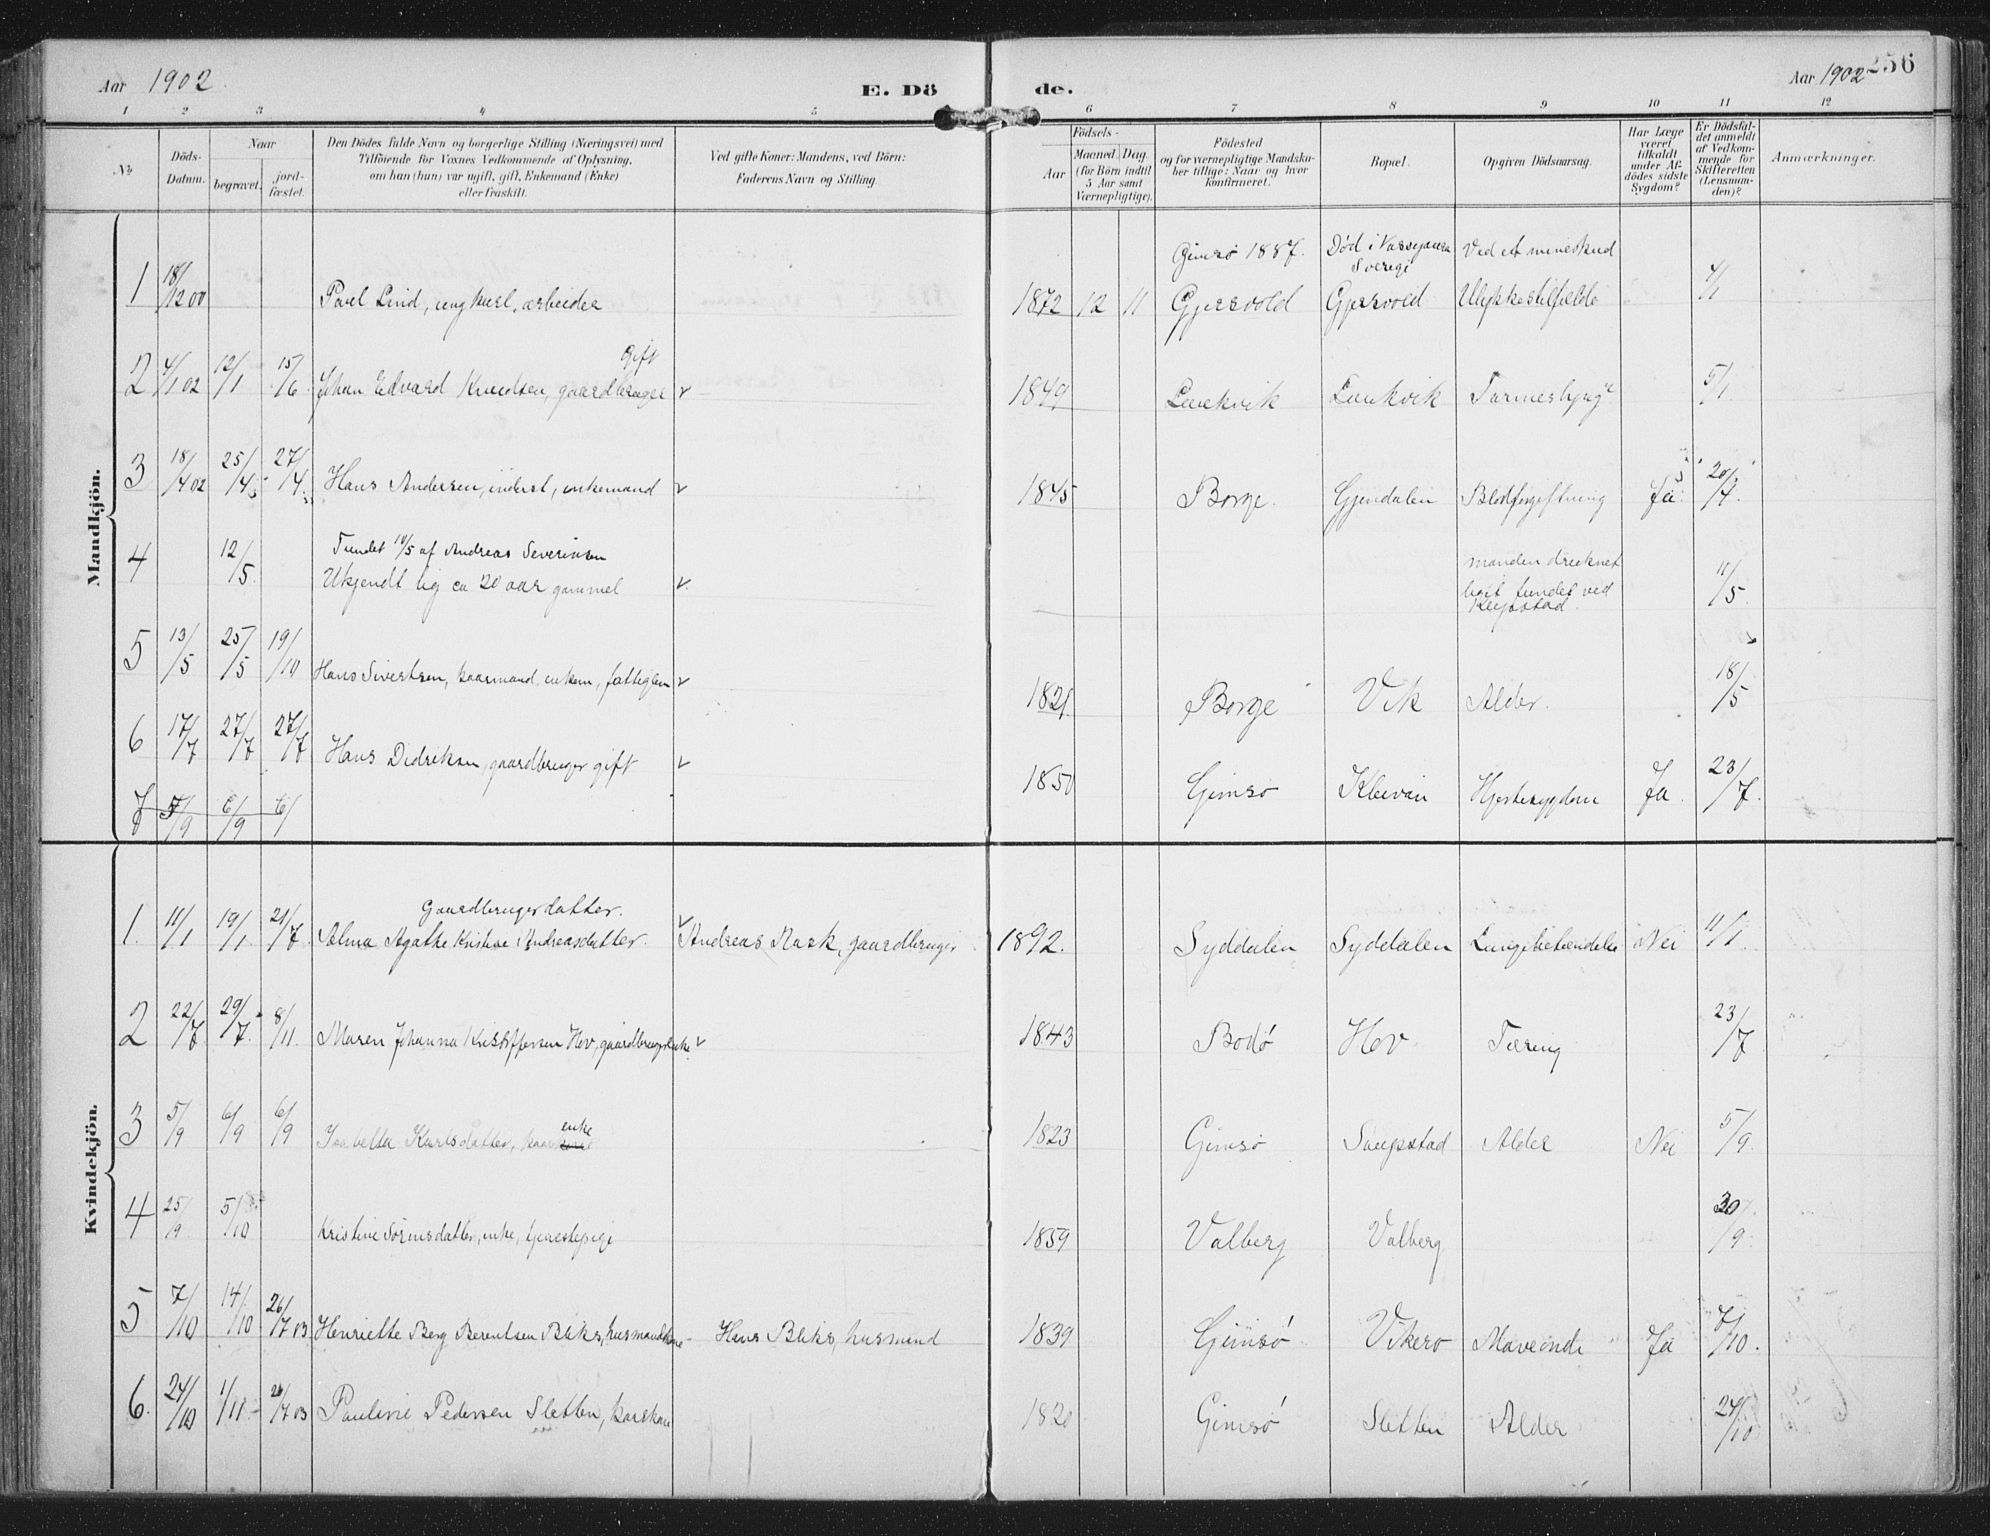 Aar 1902.
E. Dö
de.
Aar 1902
256
1 2 3 4 5 6 7 8 9 10 11 12
No
Döds-Datum.
Naar
begravet.
jord-fæstet.
Den Dödes fulde Navn og borgerlige Stilling (Næringsvei) med
Tilföiende for Voxnes Vedkommende af Oplysning,
om han (hun) var ugift, gift, Enkemand (Enke)
eller fraskilt.
Ved gifte Koner: Mandens, ved Börn:
Faderens Navn og Stilling.
Födsels-
Aar
Maaned. Dag.
(for Börn indtil
5 Aar samt
Værnepligtige).
Födested
og for værnepligtige Mandska-
ber tillige: Naar og hvor
konfirmeret.
Bopæl.
Opgiven Dödsaarsag.
Har Læge
været
tilkaldt
under Af-
dödes sidste
Sygdom?
Er Dödsfal-
det anmeldt
af Vedkom-
mende for
Skifteretten
(Lensman-
den)?
Anmærkninger.
Mandkjön.
Gimsö 1887. Död i Vassijaure Sverige Ved et mineskud
1 18/12 00 Pavel Lind, ungkarl, arbeider 1872 12 11 Gjersvold Gjersvold Ulykkestilfælde 4/1
Gift
2 4/1 02 12/1 15/6 Johan Edvard Knudsen, gaardbruger 1849 Laukvik Laukvik Tarmeslyng 5/1
3 18/4 02 25/4 27/4 Hans Andersen, inderst, enkemand 1845 Borge. Gjendalen Blodforgiftning Ja 20/4.
4 12/5 Fundet 10/5 af Andreas Severinsen
Ukjendt lig ca 20 aar gammel manden drucknet
liget fundet ved 11/5
5 13/5 25/5 19/10 Hans Sivertsen, kaarmand, enkem, fattiglem 1821. Borge Vik Alder. 18/5
6 17/7 27/7 27/7 Hans Didriksen, gaardbruger gift 1850 Gimsö Kleivan Hjertesygdom Ja. 23/7.
7 5/9 6/9 6/
Kvindekjön.
Gaardbrugerdatter.
1. 11/1 19/1 21/7 Alma Agathe Kristine Andreasdatter. Andreas Rask, gaardbruger 1892. Syddalen Syddalen Lungebetændelse Nei 11/1
2 22/7 29/7 8/11 Maren Johanna Kristoffersen Hov, gaardbrugerenke 1843 Bodö Hov Tæring 23/7
3 5/9 6/9 6/9 Isabella Karlsdatter, kaarkone enke 1823 Gimsö Saupstad Alder Nei 5/9
4 25/9 5/10 Kristine Sörensdatter, enke, tjenestepige 1859 Valberg Valberg 30/9
5 7/10 14/10 26/7 03 Henriette Berg Berentsen Bliks, husmandskone Hans Bliks, husmand 1839 Gimsö Vikerö Maveonde Ja 7/10.
6. 24/10 1/11 26/7 03 Pauline Pedersen Sletten, karskone 1820 Gimsö Sletten Alder 24/10